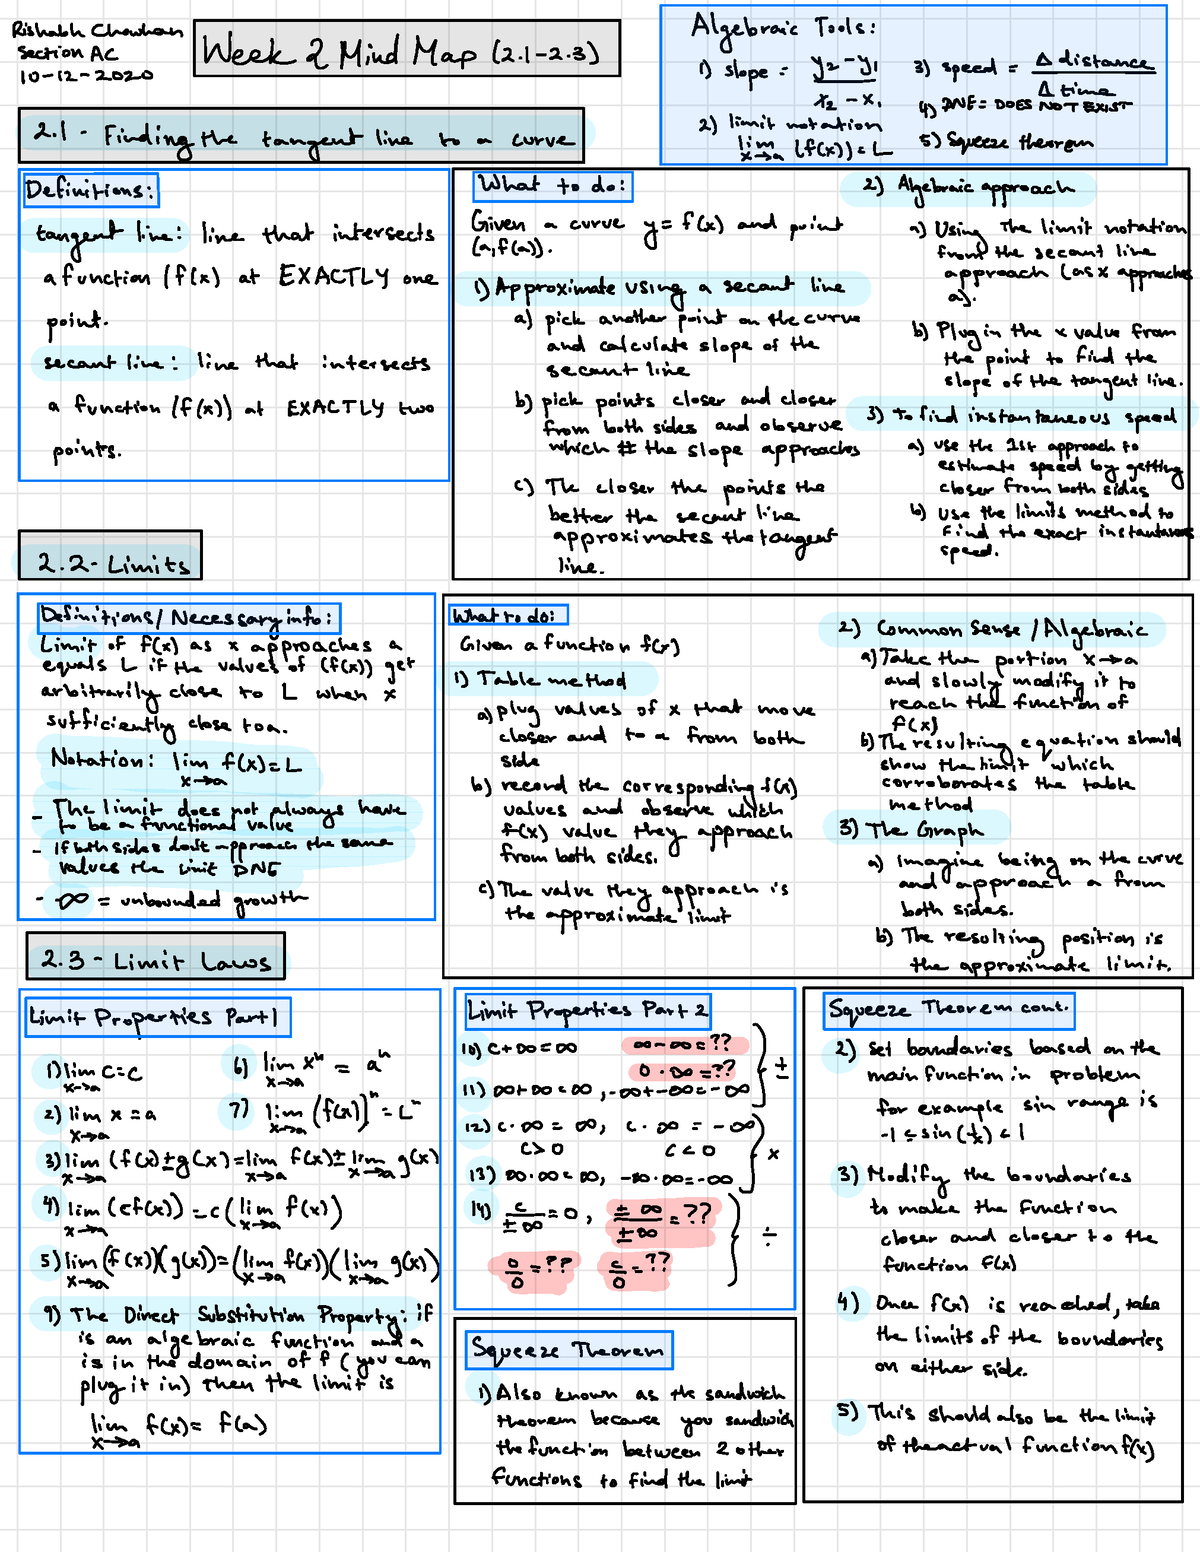 Rishabh Chowhan
Section AC
10-12-2020
Week 2 Mind Map (2.1-2.3)
Algebraic Tools:
1) slope = y₂-y₁ / x₂-x₁
2) limit notation
lim x→a (f(x)) = L
3) speed = Δ distance / Δ time
4) DNE = DOES NOT EXIST
5) Squeeze theorem
2.1 - Finding the tangent line to a curve
Definitions:
tangent line: line that intersects
a function (f(x) at EXACTLY one
point.
secant line: line that intersects
a function (f(x)) at EXACTLY two
points.
What to do:
Given a curve y = f(x) and point
(a,f(a)).
1) Approximate using a secant line
a) pick another point on the curve
and calculate slope of the
secant line
b) pick points closer and closer
from both sides and observe
which # the slope approaches
c) The closer the points the
better the secant line
approximates the tangent
line.
2) Algebraic approach
a) Using The limit notation
from the secant line
approach (as x approaches
a).
b) Plug in the x value from
the point to find the
slope of the tangent line.
3) To find instantaneous speed
a) use the 1st approach to
estimate speed by getting
closer from both sides
b) use the limits method to
find the exact instantaneous
speed.
2.2 - Limits
Definitions/Necessary info:
Limit of f(x) as x approaches a
equals L if the values of (f(x)) get
arbitrarily close to L when x
sufficiently close to a.
Notation: lim x→a f(x) = L
- The limit does not always have
to be a functional value
- If both sides don't approach the same
values the limit DNE
- ∞ = unbounded growth
What to do:
Given a function f(x)
1) Table method
a) plug values of x that move
closer and to a from both
side
b) record the corresponding f(x)
values and observe which
f(x) value they approach
from both sides.
c) The value they approach is
the approximate limit
2) Common Sense / Algebraic
a) Take the portion x→a
and slowly modify it to
reach the function of
f(x)
b) The resulting equation should
show the limit which
corroborates the table
method
3) The Graph
a) Imagine being on the curve
and approach a from
both sides.
b) The resulting position is
the approximate limit.
2.3 - Limit Laws
Limit Properties Part 1
1) lim x→a c = c
2) lim x→a x = a
6) lim x→a xⁿ = aⁿ
7) lim x→a (f(x))ⁿ = Lⁿ
3) lim x→a (f(x) ± g(x)) = lim x→a f(x) ± lim x→a g(x)
4) lim x→a (cf(x)) = c(lim x→a f(x))
5) lim x→a (f(x))(g(x)) = (lim x→a f(x))(lim x→a g(x))
9) The Direct Substitution Property: if
is an algebraic function and a
is in the domain of f (you can
plug it in) then the limit is
lim x→a f(x) = f(a)
Limit Properties Part 2
10) c+∞=∞ ∞-∞=??
0·∞=??
11) ∞+∞=∞, -∞+-∞=-∞ ±
12) c·∞ = ∞, c·∞ = -∞
c>0 c<0 ×
13) ∞·∞=∞, -∞·∞=-∞
14) c/±∞ = 0, ±∞/±∞ = ?? ÷
0/0 = ?? c/0 = ??
Squeeze Theorem
1) Also known as the sandwich
theorem because you sandwich
the function between 2 other
functions to find the limit
Squeeze Theorem cont.
2) Set boundaries based on the
main function in problem
for example sin range is
-1 ≤ sin(1/x) ≤ 1
3) Modify the boundaries
to make the function
closer and closer to the
function f(x)
4) Once f(x) is reached, take
the limits of the boundaries
on either side.
5) This should also be the limit
of the actual function f(x)